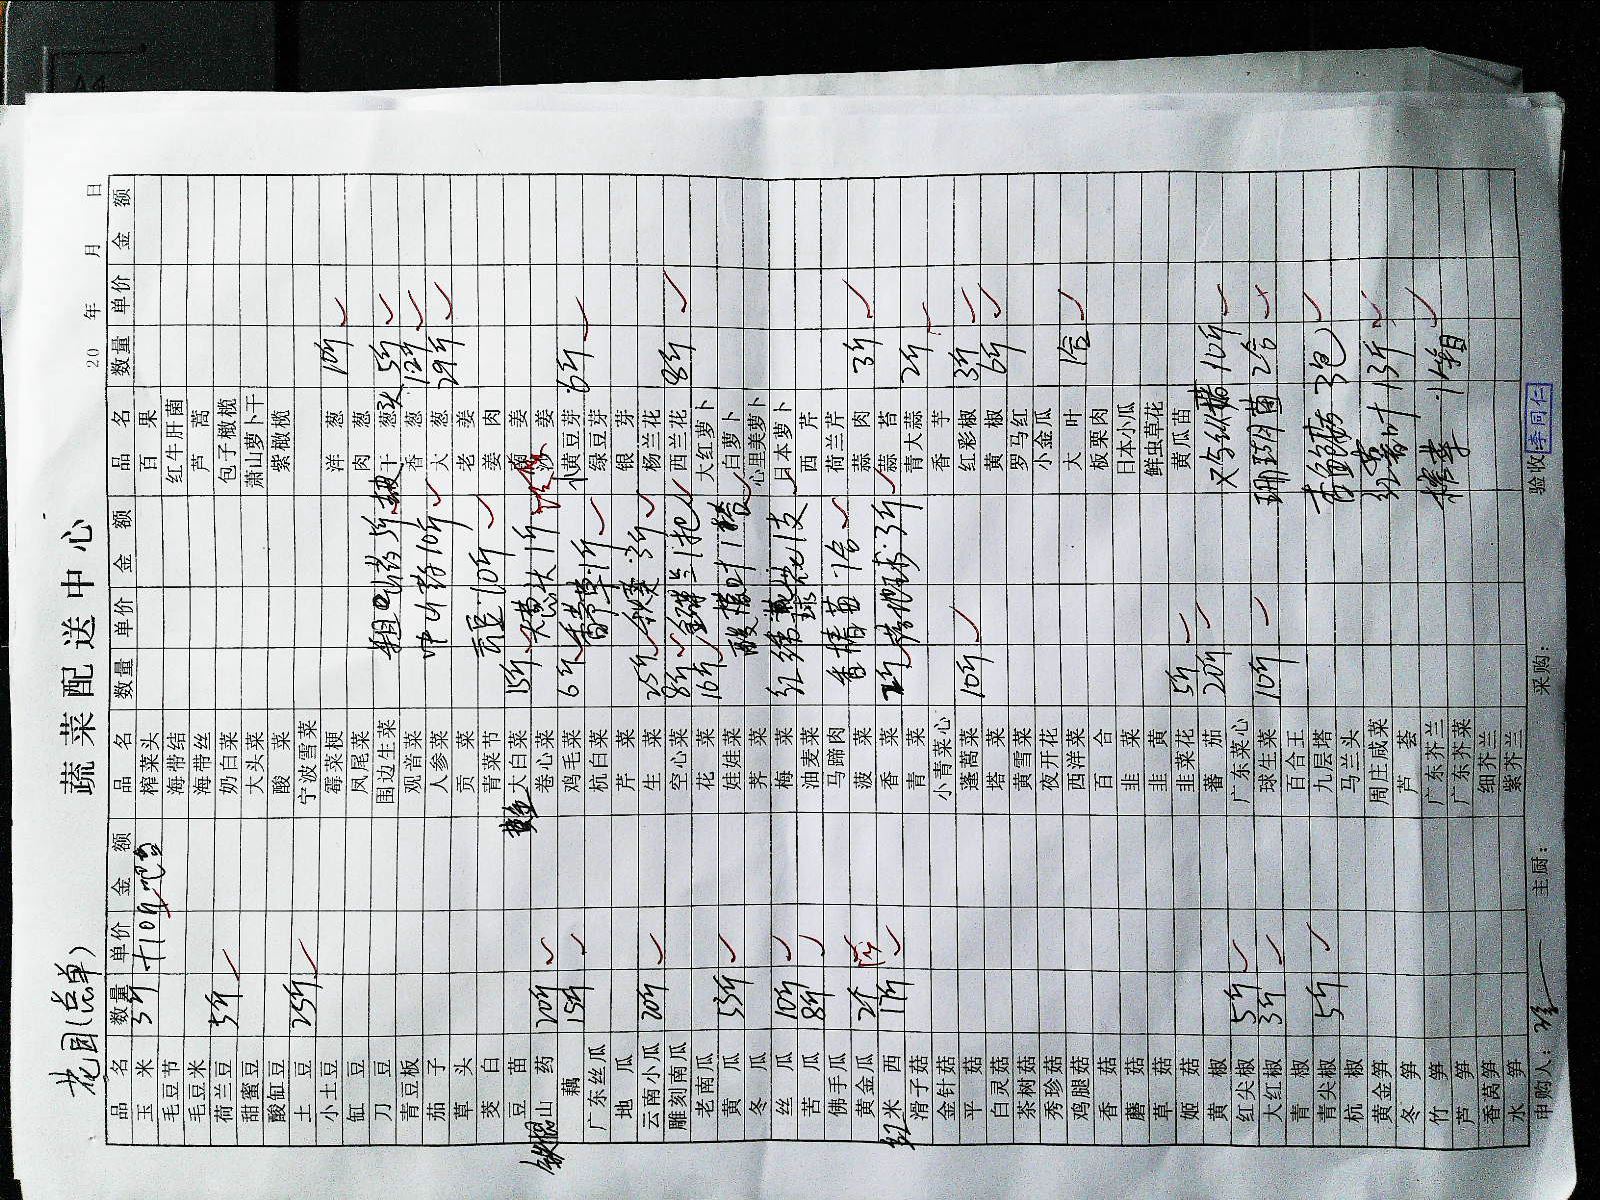 花园(总单)
蔬菜配送中心
20 年 月 日
品名 数量 单价 金额 品名 数量 单价 金额 品名 数量 单价 金额
玉米 3斤 +10斤 榨菜头 百果
毛豆节 海带结 红牛肝菌
毛豆米 海带丝 芦蒿
荷兰豆 5斤 奶白菜 包子橄榄
甜蜜豆 大头菜 萧山萝卜干
酸缸豆 酸菜 紫橄榄
土豆 25斤 宁波雪菜
小土豆 霉菜梗 洋葱 10斤
缸豆 凤尾菜 肉葱
刀豆 围边生菜 粗山药 5斤 干葱头 5斤
青豆板 观音菜 香葱 12斤
茄子 人参菜 中山药 10斤 大葱 29斤
草头 贡菜 老姜
茭白 青菜节 10斤 姜肉
豆苗 黄大白菜 15斤 南姜
铁棍山药 20斤 卷心菜 1斤 沙姜
藕 15斤 鸡毛菜 6斤 小黄豆芽 6斤
广东丝瓜 杭白菜 香草 1斤 绿豆芽
地瓜 芹菜 银芽
云南小瓜 20斤 生菜 25斤 秋葵 3斤 杨兰花
雕刻南瓜 空心菜 8斤 西兰花 8斤
老南瓜 花菜 16斤 大红萝卜
黄瓜 娃娃菜 白萝卜
冬瓜 荠菜 心里美萝卜
丝瓜 10斤 梅菜 日本萝卜
苦瓜 8斤 油麦菜 西芹
佛手瓜 马蹄肉 荷兰芹
黄金瓜 2斤 菠菜 蒜肉 3斤
红米西 17斤 香菜 2斤 3斤 蒜苔
滑子菇 青菜 青大蒜 2斤
金针菇 小青菜心 香芋
平菇 蓬蒿菜 10斤 红彩椒 3斤
白灵菇 塔菜 黄椒 6斤
茶树菇 黄雪菜 罗马红
秀珍菇 夜开花 小金瓜
鸡腿菇 西洋菜 大叶 1合
香菇 百合 板栗肉
蘑菇 韭菜 日本小瓜
草菇 韭黄 鲜虫草花
姬菇 韭菜花 5斤 黄瓜苗
黄椒 番茄 20斤 10斤
红尖椒 5斤 广东菜心
大红椒 3斤 球生菜 10斤 珊瑚菌 2合
青椒 百合王
青尖椒 5斤 九层塔 3包
杭椒 马兰头
黄金笋 周庄咸菜 红薯叶 13斤
冬笋 芦荟
竹笋 广东芥兰
芦笋 广东芥菜 榨菜 1箱
香莴笋 细芥兰
水笋 紫芥兰
申购人： 主厨： 采购： 验收